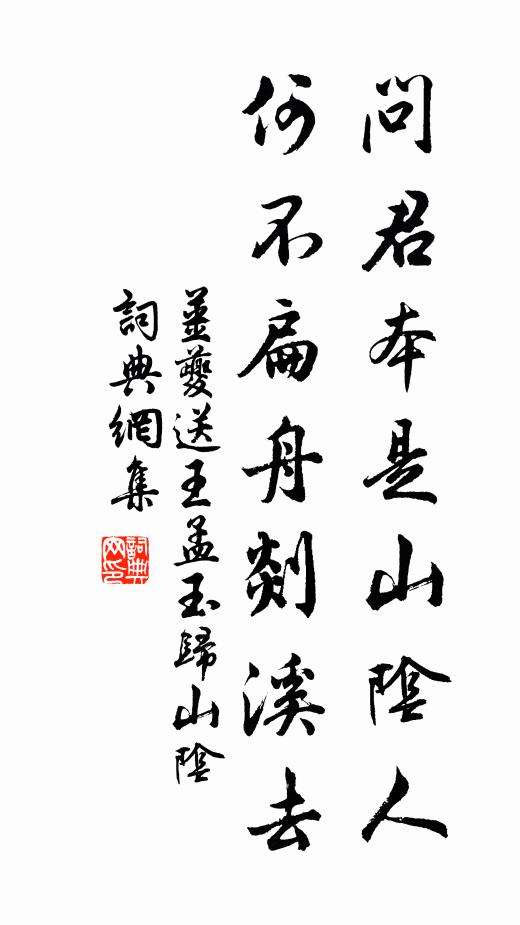 問君本是山陰人
何不扁舟剡溪去
姜夔送王孟玉歸山陰
詞典網集
詞典網印